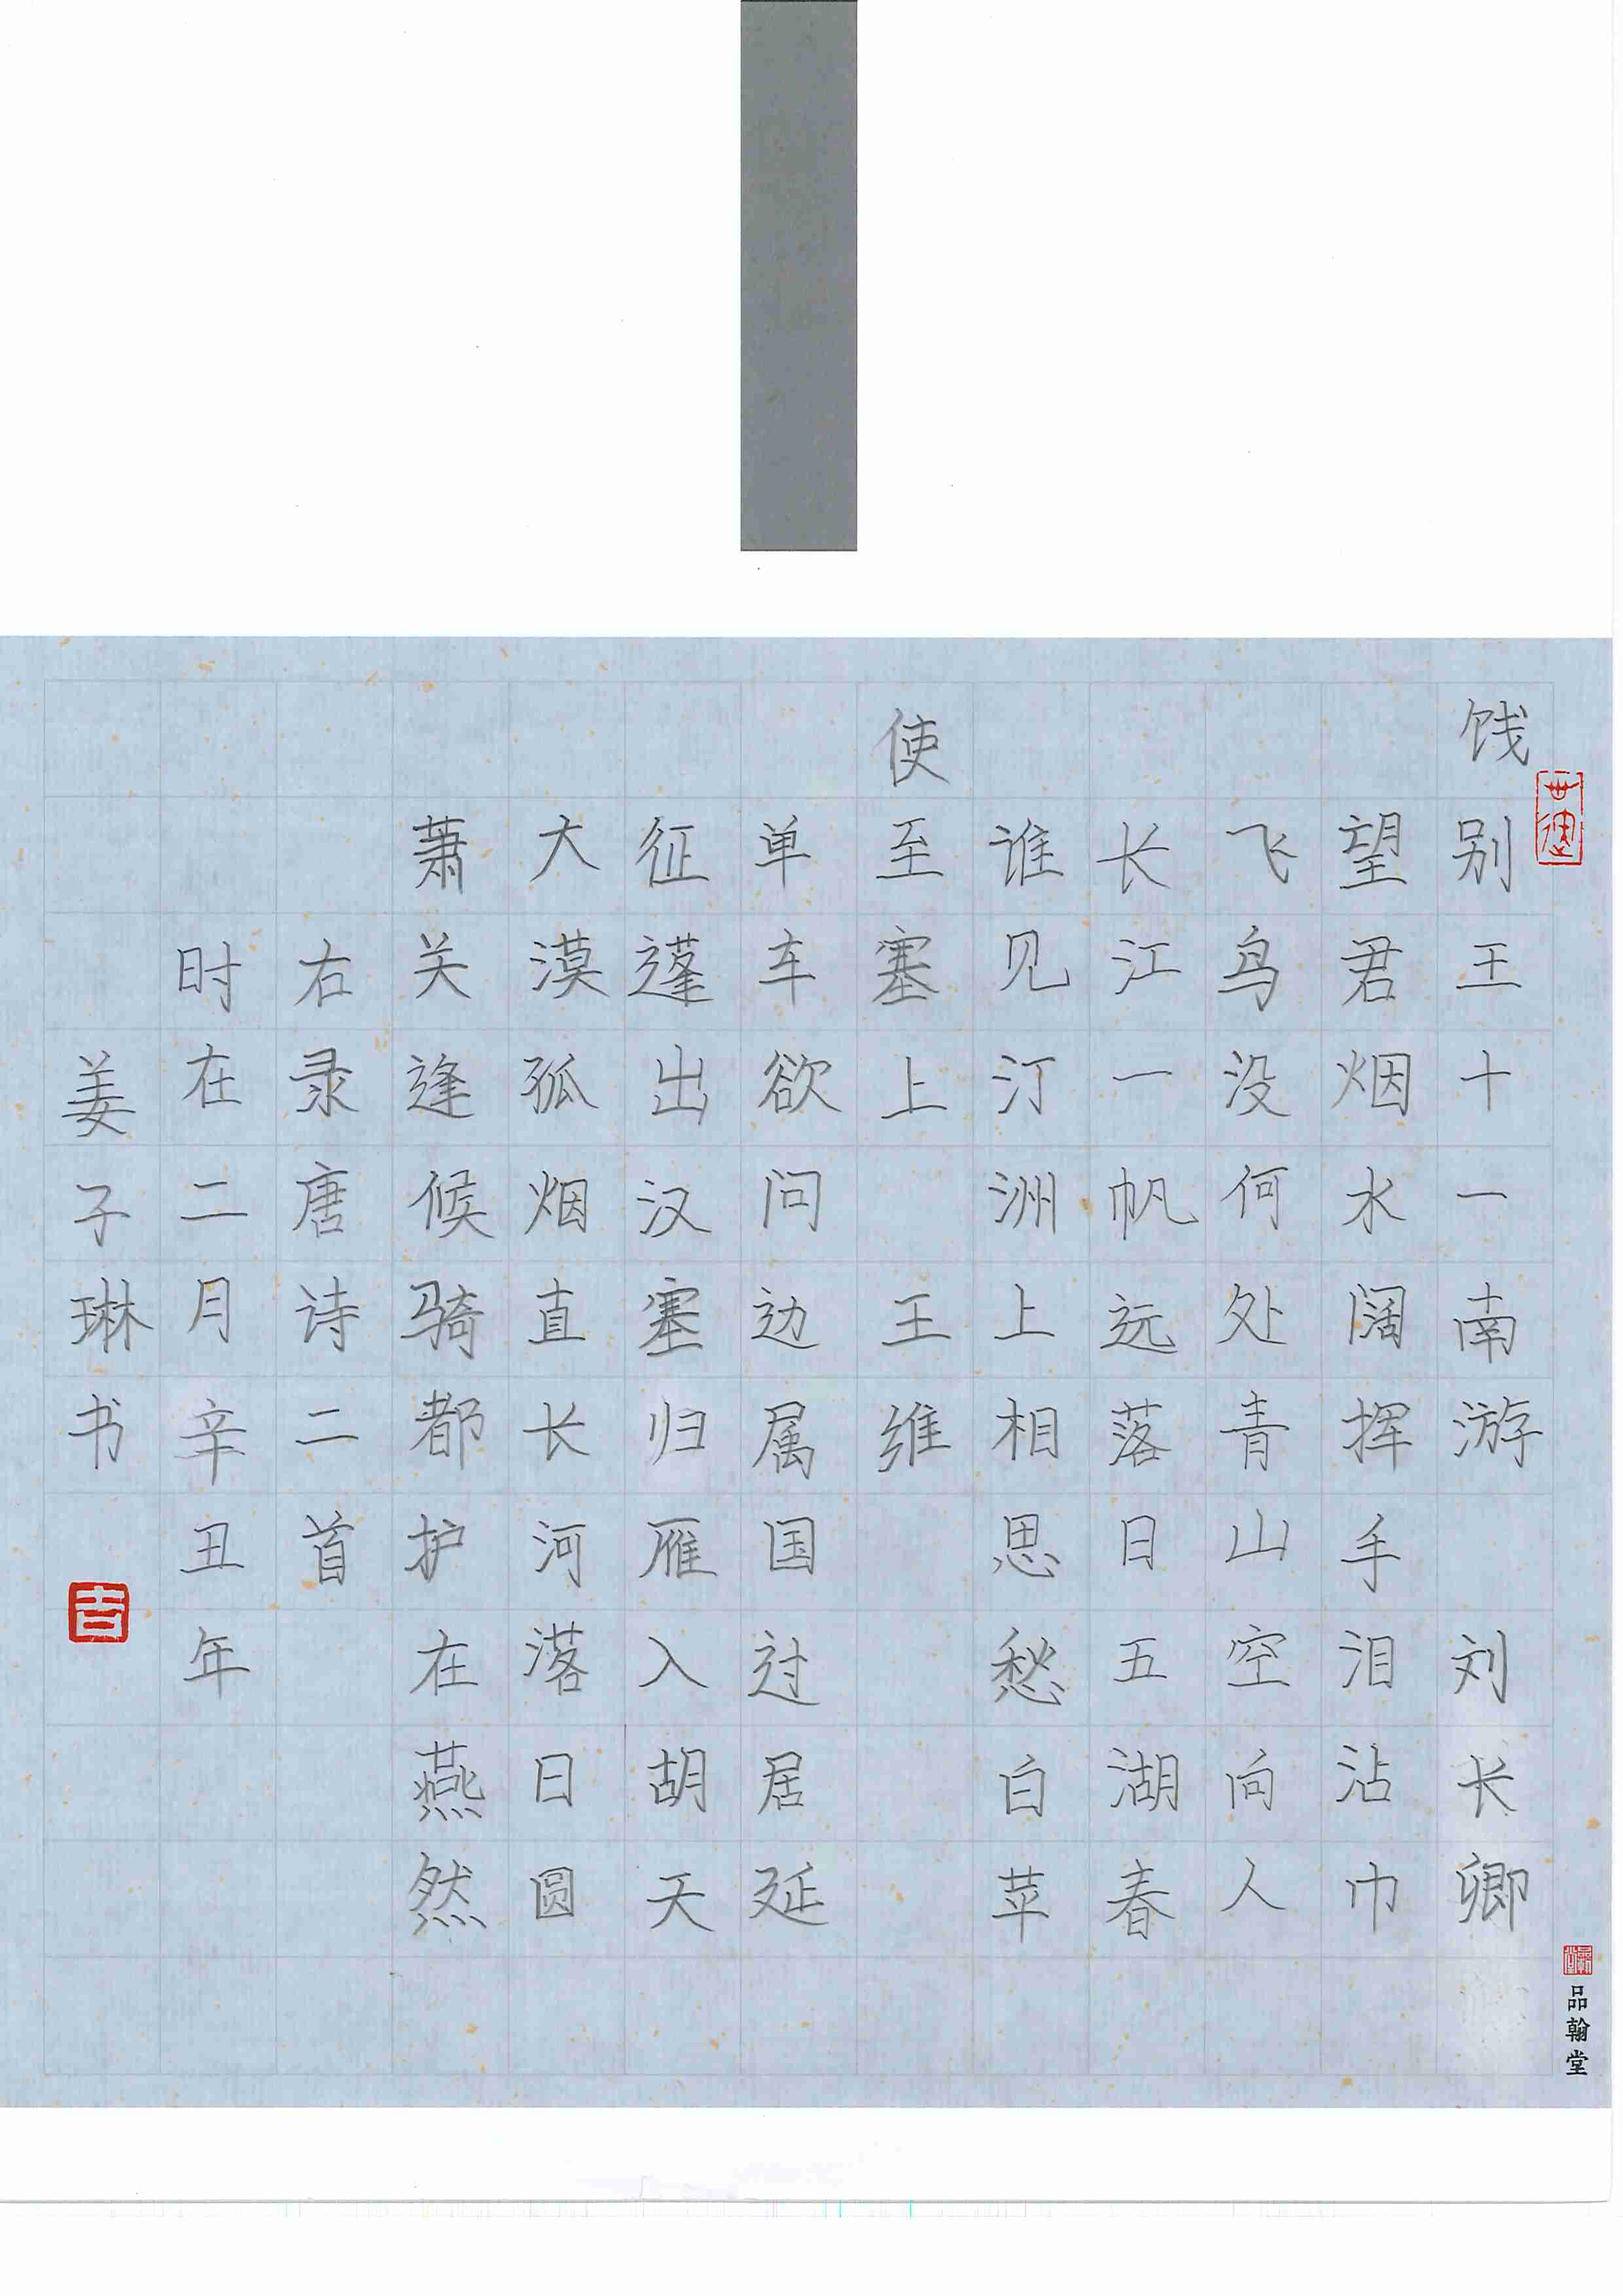 饯别王十一南游 刘长卿
望君烟水阔挥手泪沾巾
飞鸟没何处青山空向人
长江一帆远落日五湖春
谁见汀洲上相思愁白苹
使至塞上 王维
单车欲问边属国过居延
征蓬出汉塞归雁入胡天
大漠孤烟直长河落日圆
萧关逢候骑都护在燕然
右录唐诗二首
时在二月辛丑年
姜子琳书
吉
品翰堂